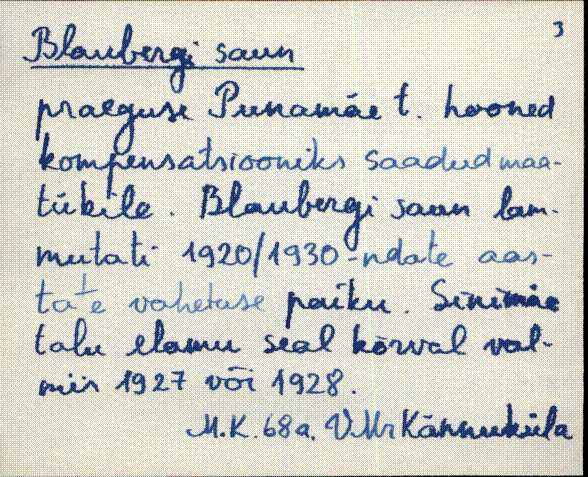 3
Blaubergi saun
praeguse Punamäe t. hooned
kompensatsiooniks saadud maa-
tükile. Blaubergi saun lam-
mutati 1920/1930-ndate aas-
tate vahetuse paiku. Sinimäe
talu elamu seal kõrval val-
mis 1927 või 1928.
M.K. 68a. VMr Kännuküla